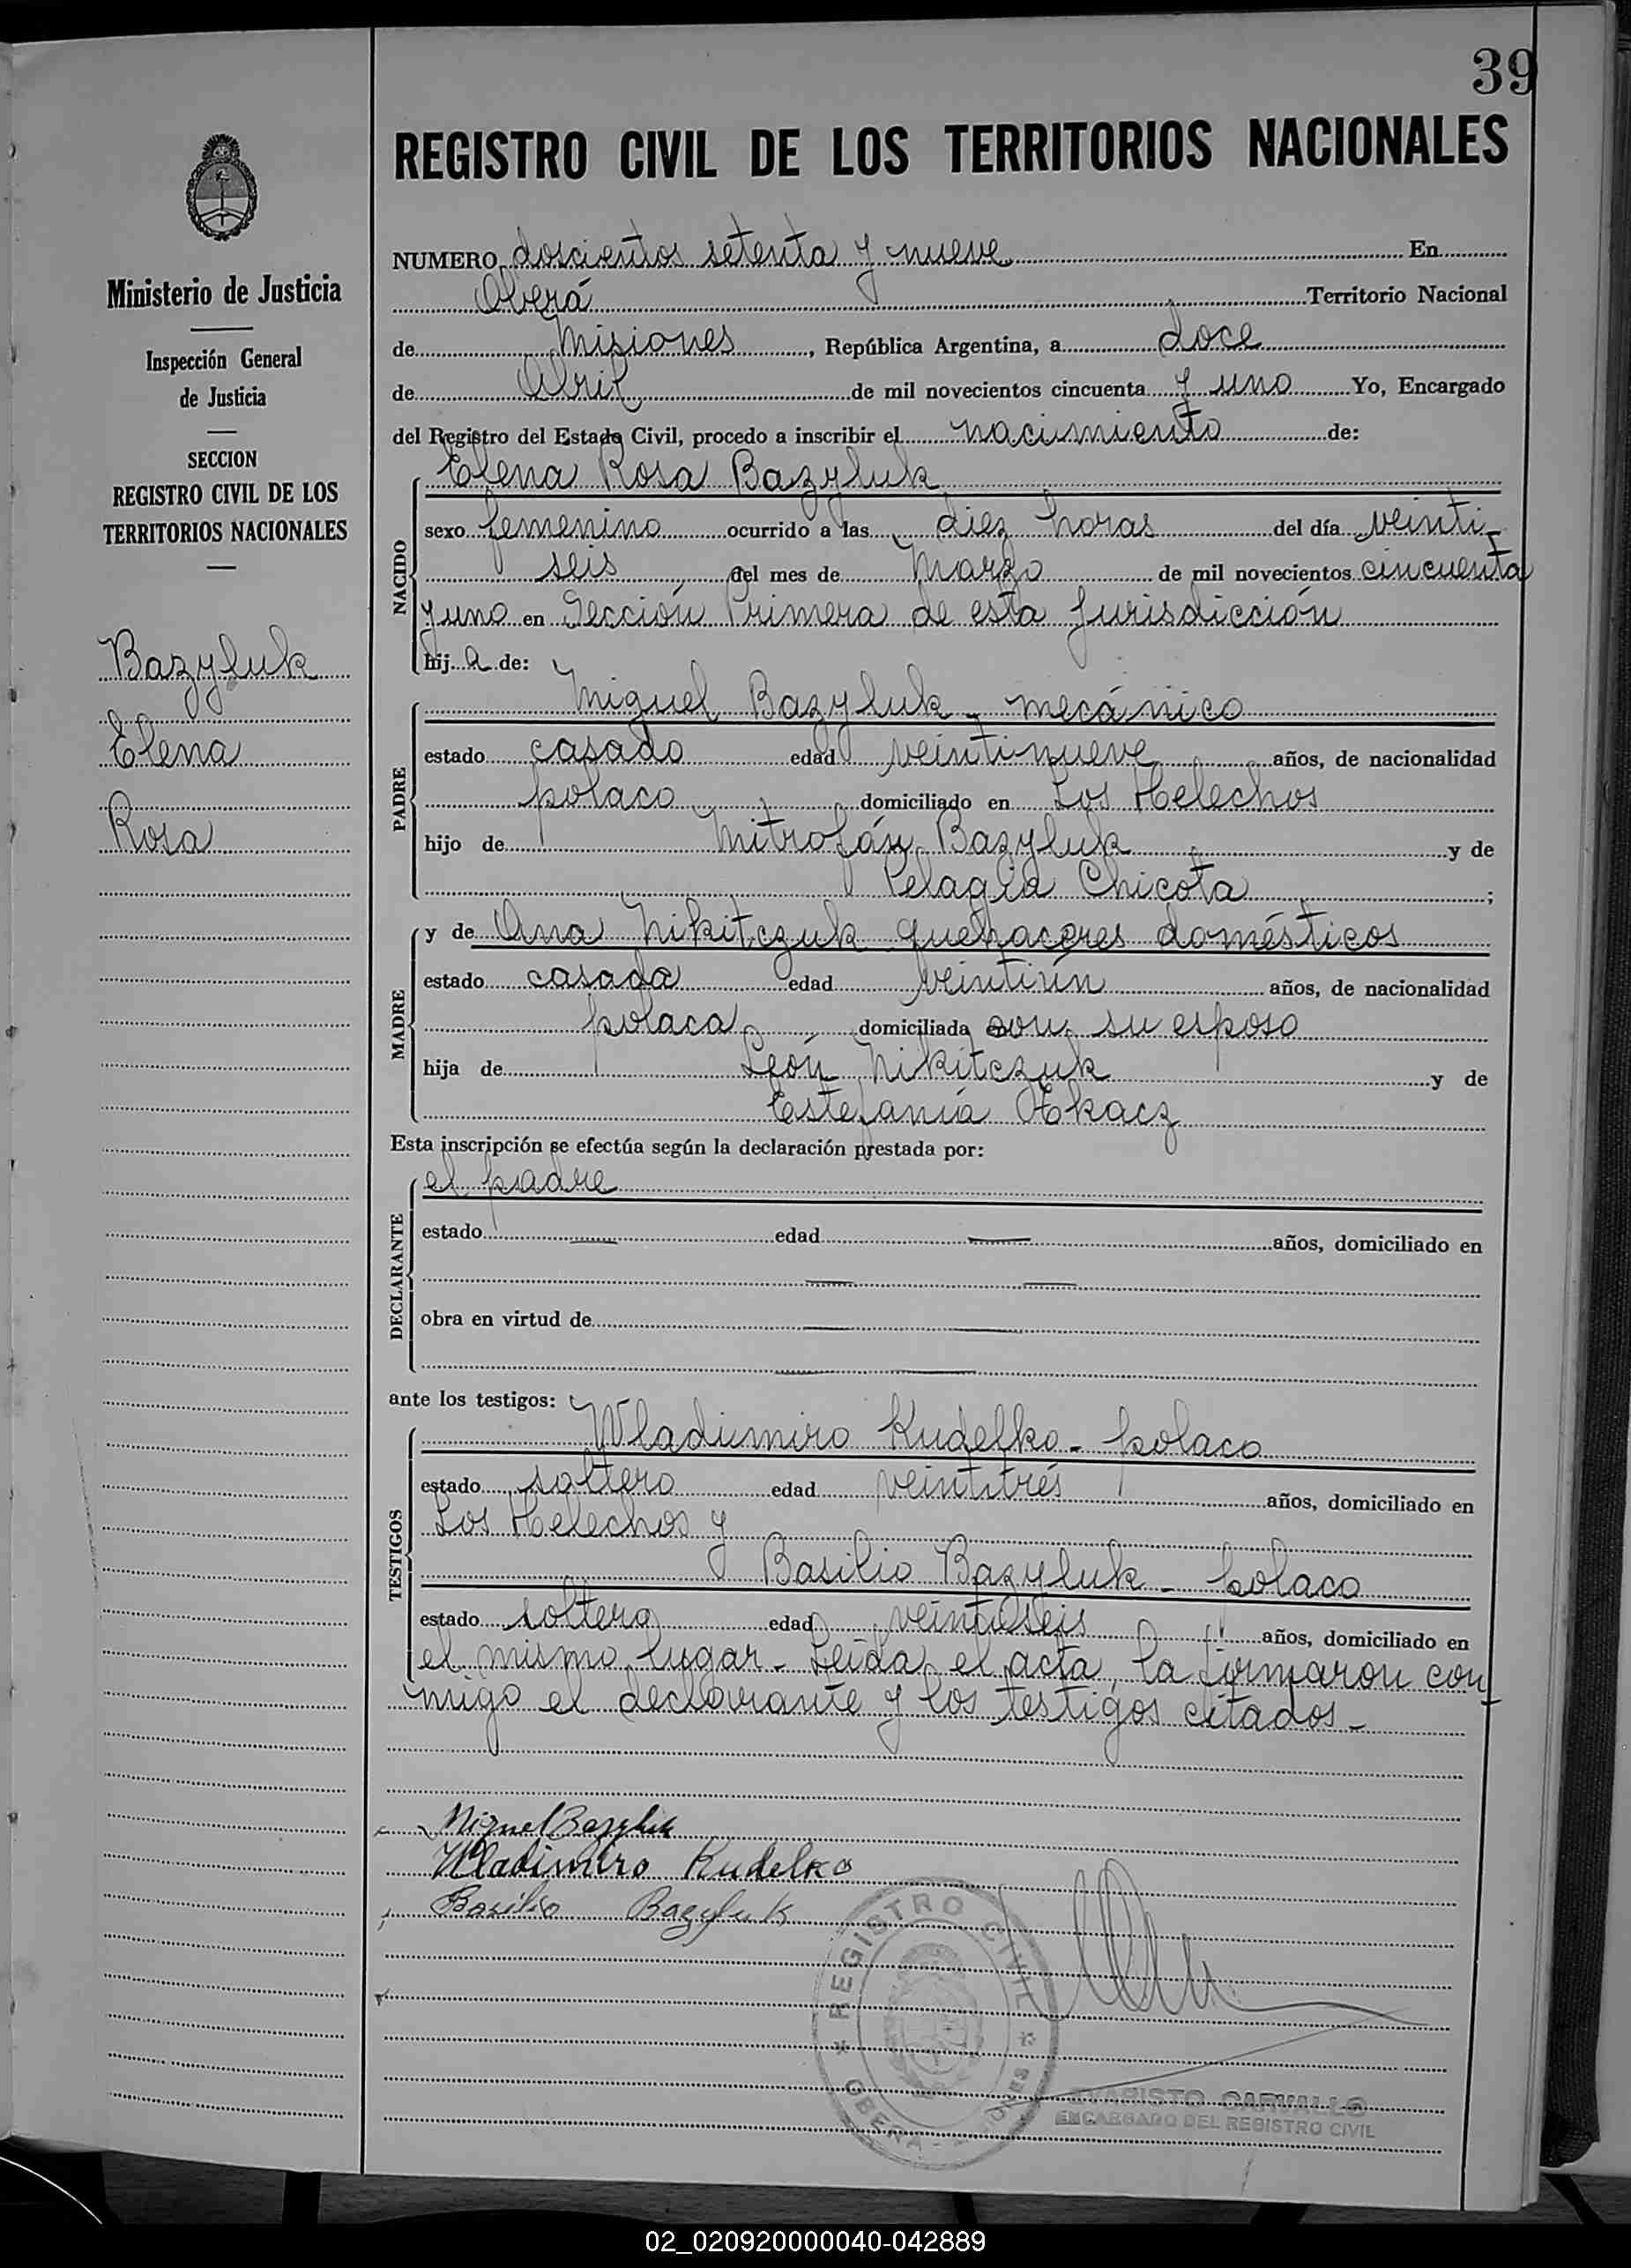 39
REGISTRO CIVIL DE LOS TERRITORIOS NACIONALES
Ministerio de Justicia
Inspección General
de Justicia
SECCION
REGISTRO CIVIL DE LOS
TERRITORIOS NACIONALES
Bazyluk
Elena
Rosa
NUMERO doscientos setenta y nueve En
Oberá Territorio Nacional
de Misiones, República Argentina, a doce
de Abril de mil novecientos cincuenta y uno Yo, Encargado
del Registro del Estado Civil, procedo a inscribir el nacimiento de:
NACIDO
Elena Rosa Bazyluk
sexo femenino ocurrido a las diez horas del día veinti-
seis del mes de Marzo de mil novecientos cincuenta
y uno en Sección Primera de esta Jurisdicción
hij a de:
PADRE
Miguel Bazyluk - mecánico
estado casado edad veintinueve años, de nacionalidad
polaco domiciliado en Los Helechos
hijo de Mitrofán Bazyluk y de
Pelagia Chicota ;
MADRE
y de Ana Nikitczuk quehaceres domésticos
estado casada edad veintiún años, de nacionalidad
polaca domiciliada con su esposo
hija de León Nikitczuk y de
Estefanía Tkacz
Esta inscripción se efectúa según la declaración prestada por:
DECLARANTE
el padre
estado — edad — años, domiciliado en
— —
obra en virtud de — —
— —
ante los testigos:
TESTIGOS
Wladimiro Kudelko - polaco
estado soltero edad veintitrés años, domiciliado en
Los Helechos y
Basilio Bazyluk - polaco
estado soltero edad veintiseis años, domiciliado en
el mismo lugar - Leída el acta, la firmaron con-
migo el declarante y los testigos citados -
Miguel Bazyluk
Wladimiro Kudelko
Basilio Bazyluk
REGISTRO CIVIL
OBERA - MISIONES
EVARISTO CARVALLO
ENCARGADO DEL REGISTRO CIVIL
02_020920000040-042889